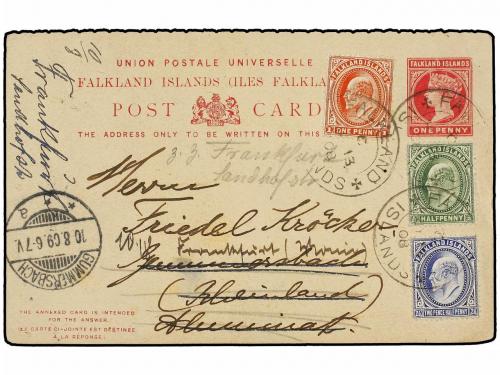 UNION POSTALE UNIVERSELLE
FALKLAND ISLANDS (ILES FALKLA
POST CARD
THE ADDRESS ONLY TO BE WRITTEN ON THIS
FALKLAND ISLANDS
ONE PENNY
FALKLAND ISLANDS
ONE PENNY
FALKLAND ISLANDS
HALFPENNY
FALKLAND ISLANDS
TWO PENCE HALFPENNY
10/8
Frankfurt
Landhofstr
z. Z. Frankfurt
Landhofstr
Herrn
Friedel Kröcker
Frankfurt (Main)
Gummersbach
(Rheinland)
GUMMERSBACH
10.8.09.6-7V.
THE ANNEXED CARD IS INTENDED
FOR THE ANSWER.
(LA CARTE CI-JOINTE EST DESTINÉE
A LA RÉPONSE.)